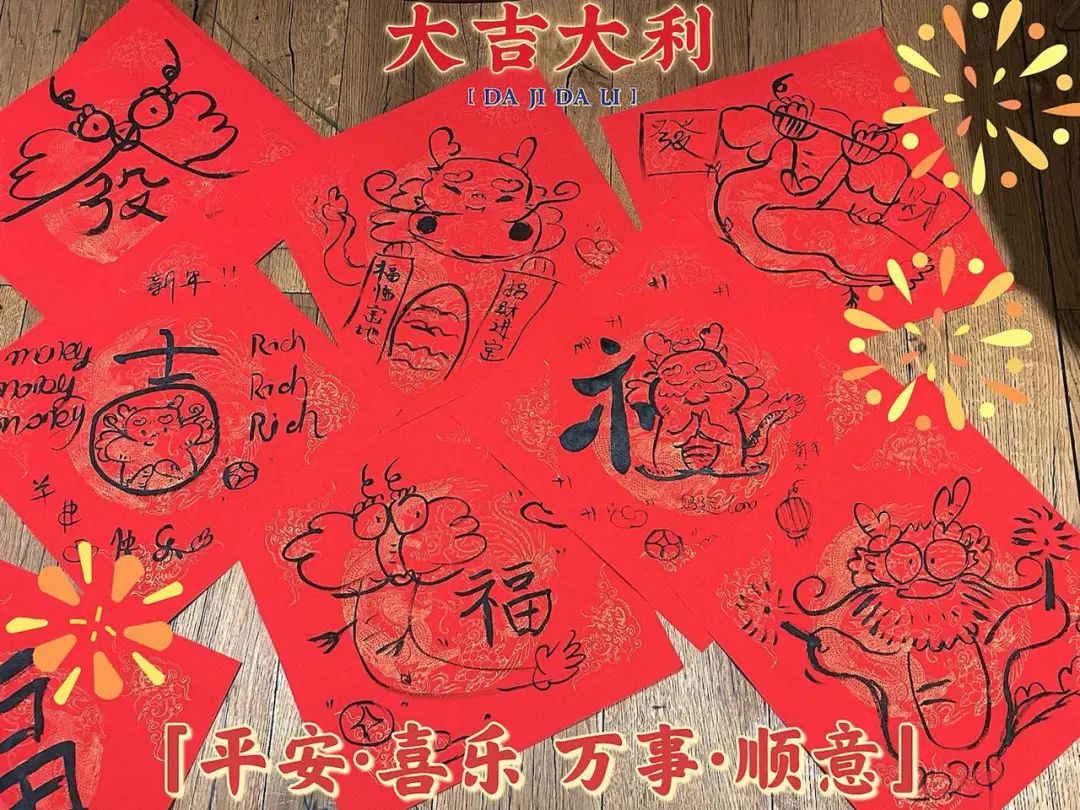 大吉大利
[ DA JI DA LI ]
發
發
财
福临宝地
招财进宝
新年!!
money
money
money
Rich
Rich
Rich
吉
快乐
新年
福
「平安·喜乐 万事·顺意」